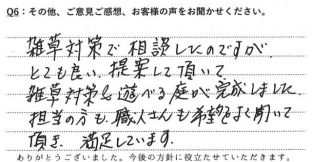 Q6：その他、ご意見ご感想、お客様の声をお聞かせください。
雑草対策で相談したのですが、
とても良い提案して頂いて
雑草対策&遊べる庭が完成しました。
担当の方も、職人さんも希望をよく聞いて
頂き、満足しています。
ありがとうございました。今後の方針に役立たせていただきます。